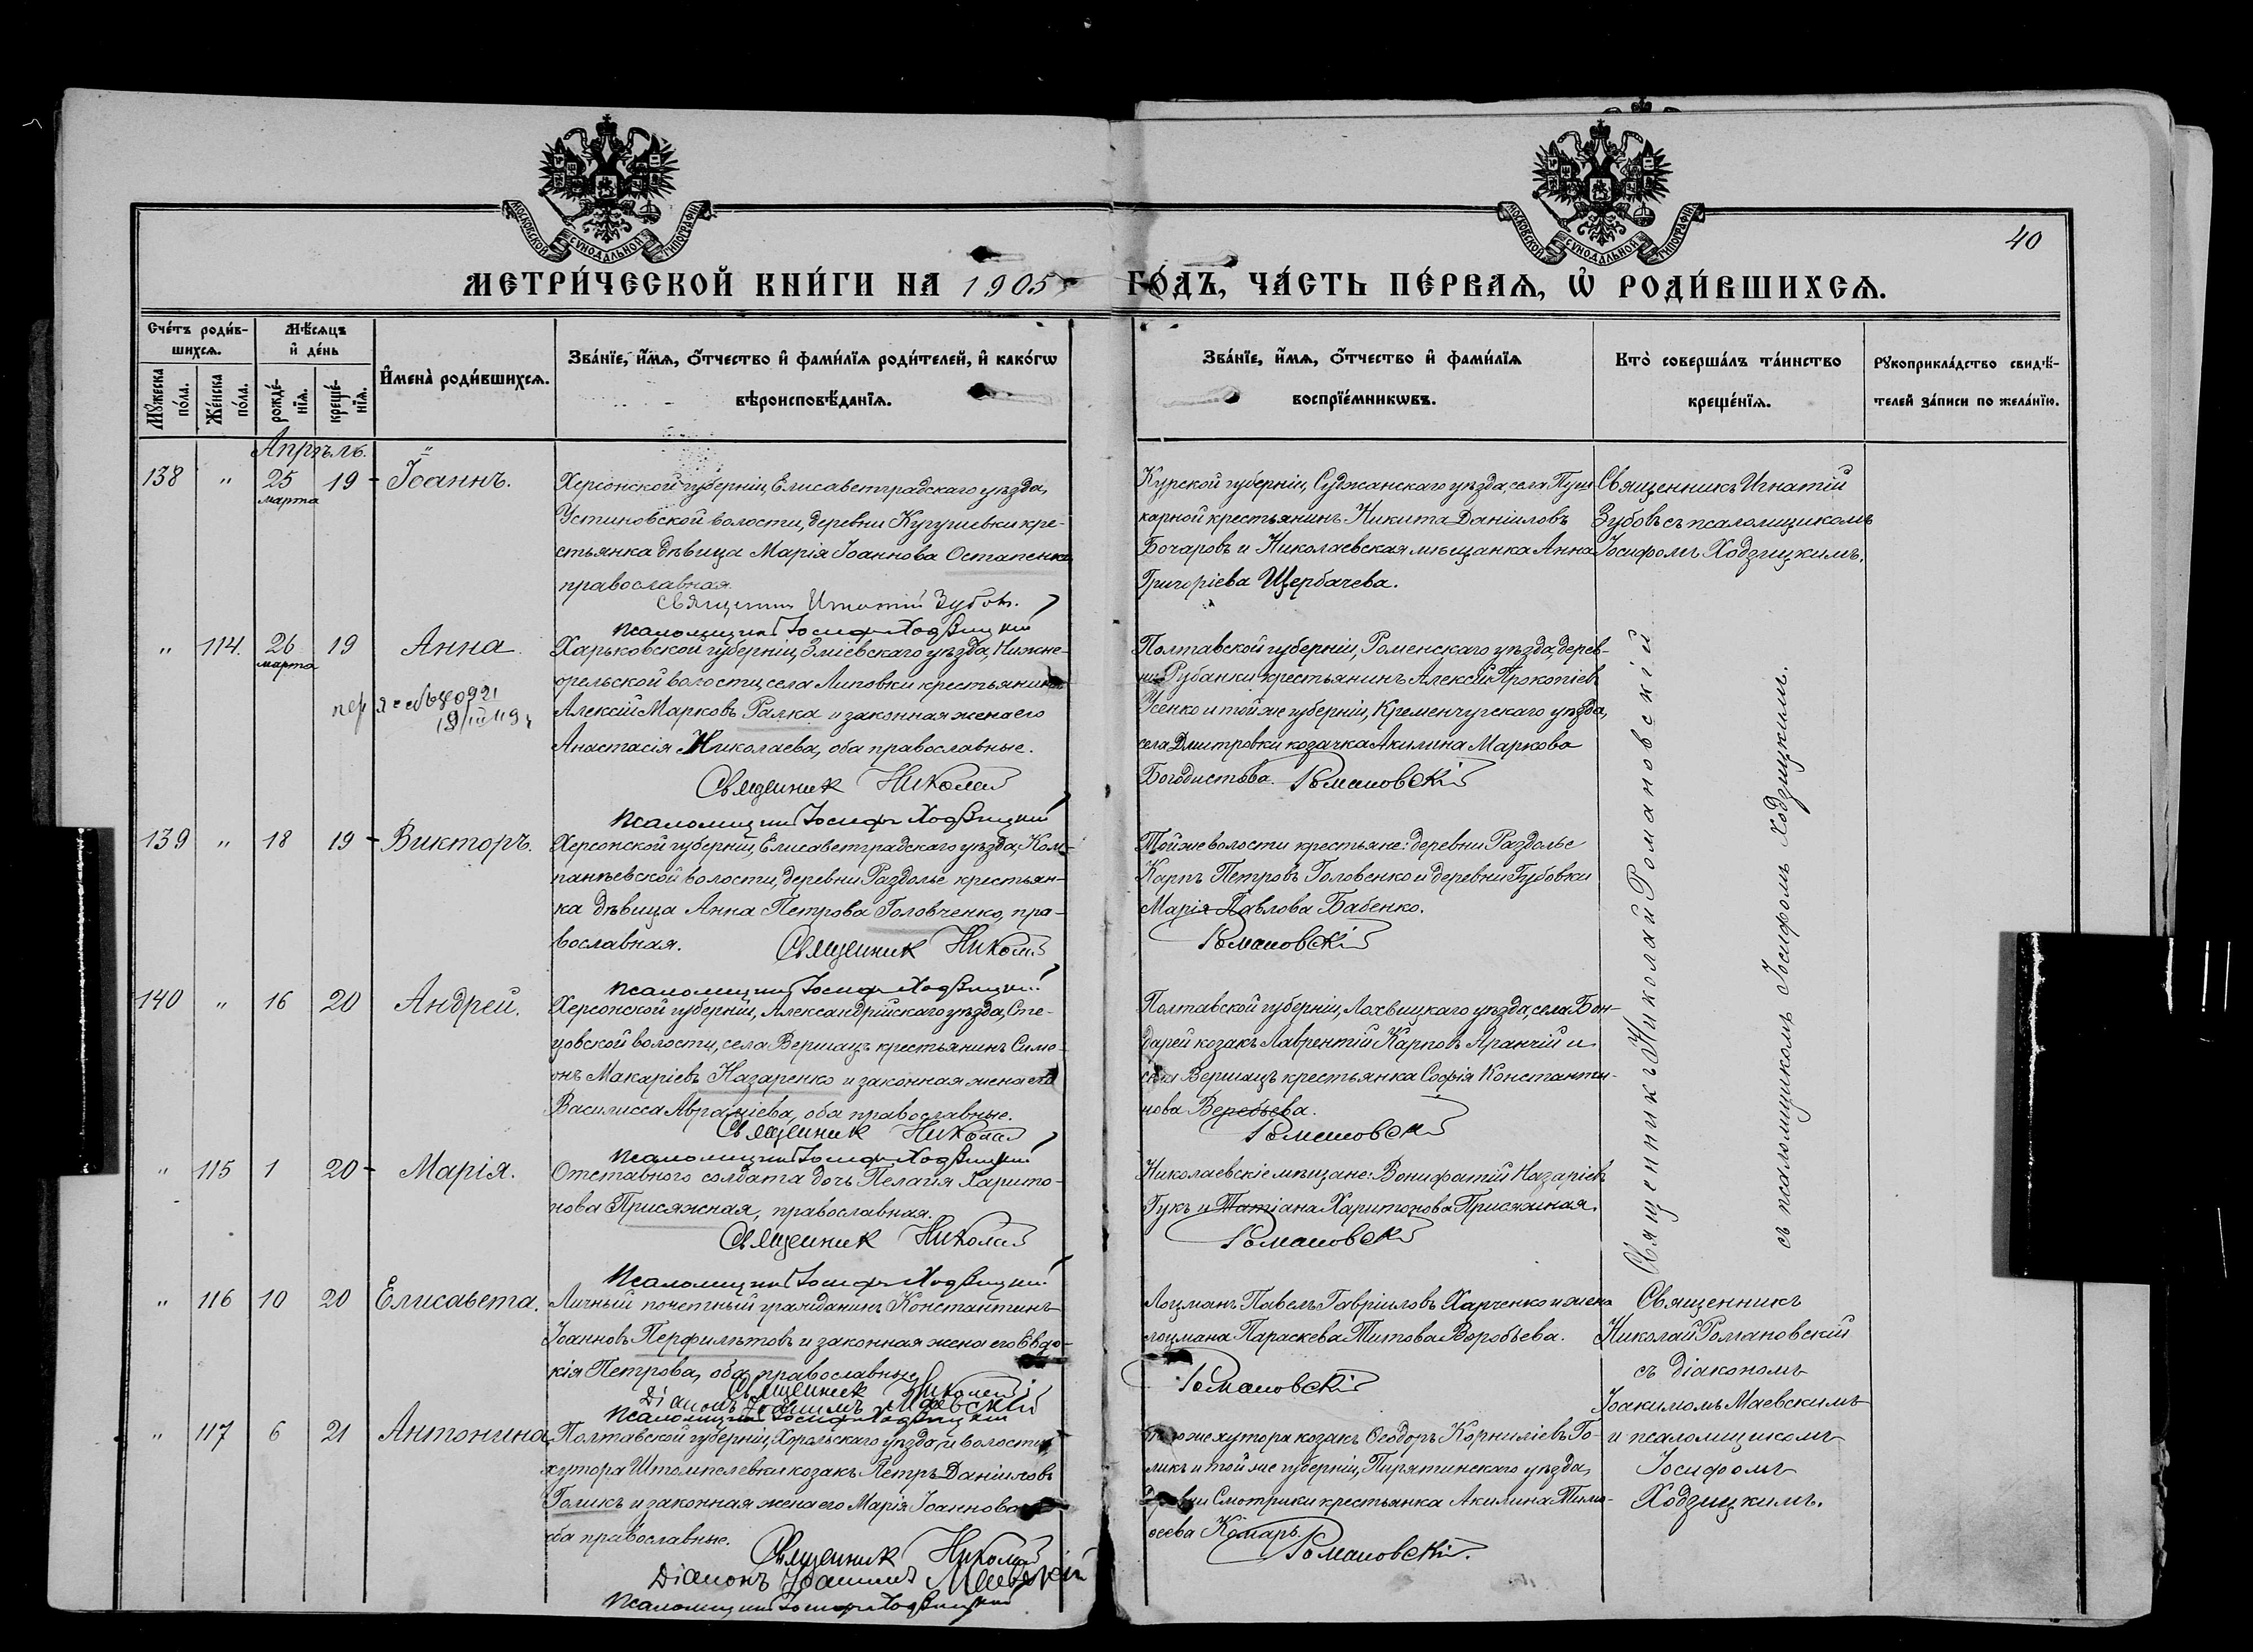 МОСКОВСКОЙ СѴНОДАЛЬНОЙ ТИПОГРАФІИ
МОСКОВСКОЙ СѴНОДАЛЬНОЙ ТИПОГРАФІИ
40
МЕТРИ́ЧЕСКОЙ КНИ́ГИ НА 1905 ГО́ДЪ, ЧА́СТЬ ПЕ́РВАѦ, Ѡ҆ РОДИ́ВШИХСѦ.
Сче́тъ роди́в-
шихсѧ.
Мѣ́сѧцъ
и҆ де́нь
Мꙋ́жеска по́ла.
Же́нска по́ла.
рожде́-
нїѧ.
креще́-
нїѧ.
И҆мена̀ роди́вшихсѧ.
Зва́нїе, и҆́мѧ, ѻ҆́тчество и҆ фами́лїѧ роди́телей, и҆ како́гѡ
вѣроисповѣ́данїѧ.
Зва́нїе, и҆́мѧ, ѻ҆́тчество и҆ фами́лїѧ
воспрїе́мникѡвъ.
Кто̀ соверша́лъ та́инство
креще́нїѧ.
Рꙋкоприкла́дство свидѣ́-
телей за́писи по жела́нїю.
Апрѣль.
138 " 25 марта 19 Іоаннъ.
Херсонской губерніи, Елисаветградскаго уѣзда,
Устиновской волости, деревни Кугушевки кре-
стьянка дѣвица Марія Іоаннова Остапенко
православная.
Священник Игнатій Зубовъ.
Псаломщикъ Іосифъ Ходзицкій
Курской губерніи, Суджанскаго уѣзда, села Пуш
карной крестьянинъ Никита Даніиловъ
Бочаровъ и Николаевская мѣщанка Анна
Григоріева Щербачева.
Священникъ Игнатій
Зубовъ съ псаломщикомъ
Іосифомъ Ходзицкимъ.
" 114. 26 марта 19 Анна.
Харьковской губерніи, Зміевскаго уѣзда, Нижне-
орельской волости, села Липовки крестьянинъ
Алексій Марковъ Галка и законная жена его
Анастасія Николаева, оба православные.
Священник Николай
Псаломщикъ Іосифъ Ходзицкій
Полтавской губерніи, Роменскаго уѣзда, дерев-
ни Рубанки крестьянинъ Алексій Прокопіевъ
Усенко и той же губерніи, Кременчугскаго уѣзда,
села Дмитровки козачка Акилина Маркова
Богодистова. Романовскій
139 " 18 19 Викторъ.
Херсонской губерніи, Елисаветградскаго уѣзда, Ком-
панѣевской волости, деревни Раздолье крестьян-
ка дѣвица Анна Петрова Головченко, пра-
вославная. Священник Николай
Псаломщикъ Іосифъ Ходзицкій
Той же волости крестьяне: деревни Раздолье
Карпъ Петровъ Головенко и деревни Губовки
Марія Павлова Бабенко.
Романовскій
140 " 16 20 Андрей.
Херсонской губерніи, Александрійскаго уѣзда, Сте-
цовской волости, села Вершацъ крестьянинъ Симе-
онъ Макаріевъ Назаренко и законная жена его
Василисса Авраміева, оба православные.
Священник Николай
Псаломщикъ Іосифъ Ходзицкій
Полтавской губерніи, Лохвицкаго уѣзда, села Бон-
дарей козакъ Лаврентій Карповъ Аранчій и
села Вершацъ крестьянка Софія Константи-
нова Веребьева.
Романовскій
" 115 1 20 Марія.
Отставного солдата дочь Пелагія Харито-
нова Присяжная, православная.
Священник Николай
Псаломщикъ Іосифъ Ходзицкій
Николаевскіе мѣщане: Вонифатій Назаріевъ
Гукъ и Татіана Харитонова Присяжная.
Романовскій
Священникъ Николай Романовскій
съ псаломщикомъ Іосифомъ Ходзицкимъ.
" 116 10 20 Елисавета.
Личный почетный гражданинъ Константинъ
Іоанновъ Перфилѣтовъ и законная жена его Евдо-
кія Петрова, оба православные.
Священник Николай
Діаконъ Іоакимъ Маевскій
Псаломщикъ Іосифъ Ходзицкій
Лоцманъ Павелъ Гавріиловъ Харченко и жена
лоцмана Параскева Титова Воробьева.
Романовскій
Священникъ
Николай Романовскій
съ діакономъ
Іоакимомъ Маевскимъ
и псаломщикомъ
Іосифомъ
Ходзицкимъ.
" 117 6 21 Антонина
Полтавской губерніи, Хорольскаго уѣзда, и волости,
хутора Штомпелевки козакъ Петръ Даніиловъ
Голикъ и законная жена его Марія Іоаннова
оба православные. Священник Николай
Діаконъ Іоакимъ Маевскій
Псаломщикъ Іосифъ Ходзицкій
того же хутора козакъ Ѳеодоръ Корниліевъ Го-
ликъ и той же губерніи, Пирятинскаго уѣзда,
деревни Смотрики крестьянка Акилина Тимо-
ѳеева Комаръ.
Романовскій.